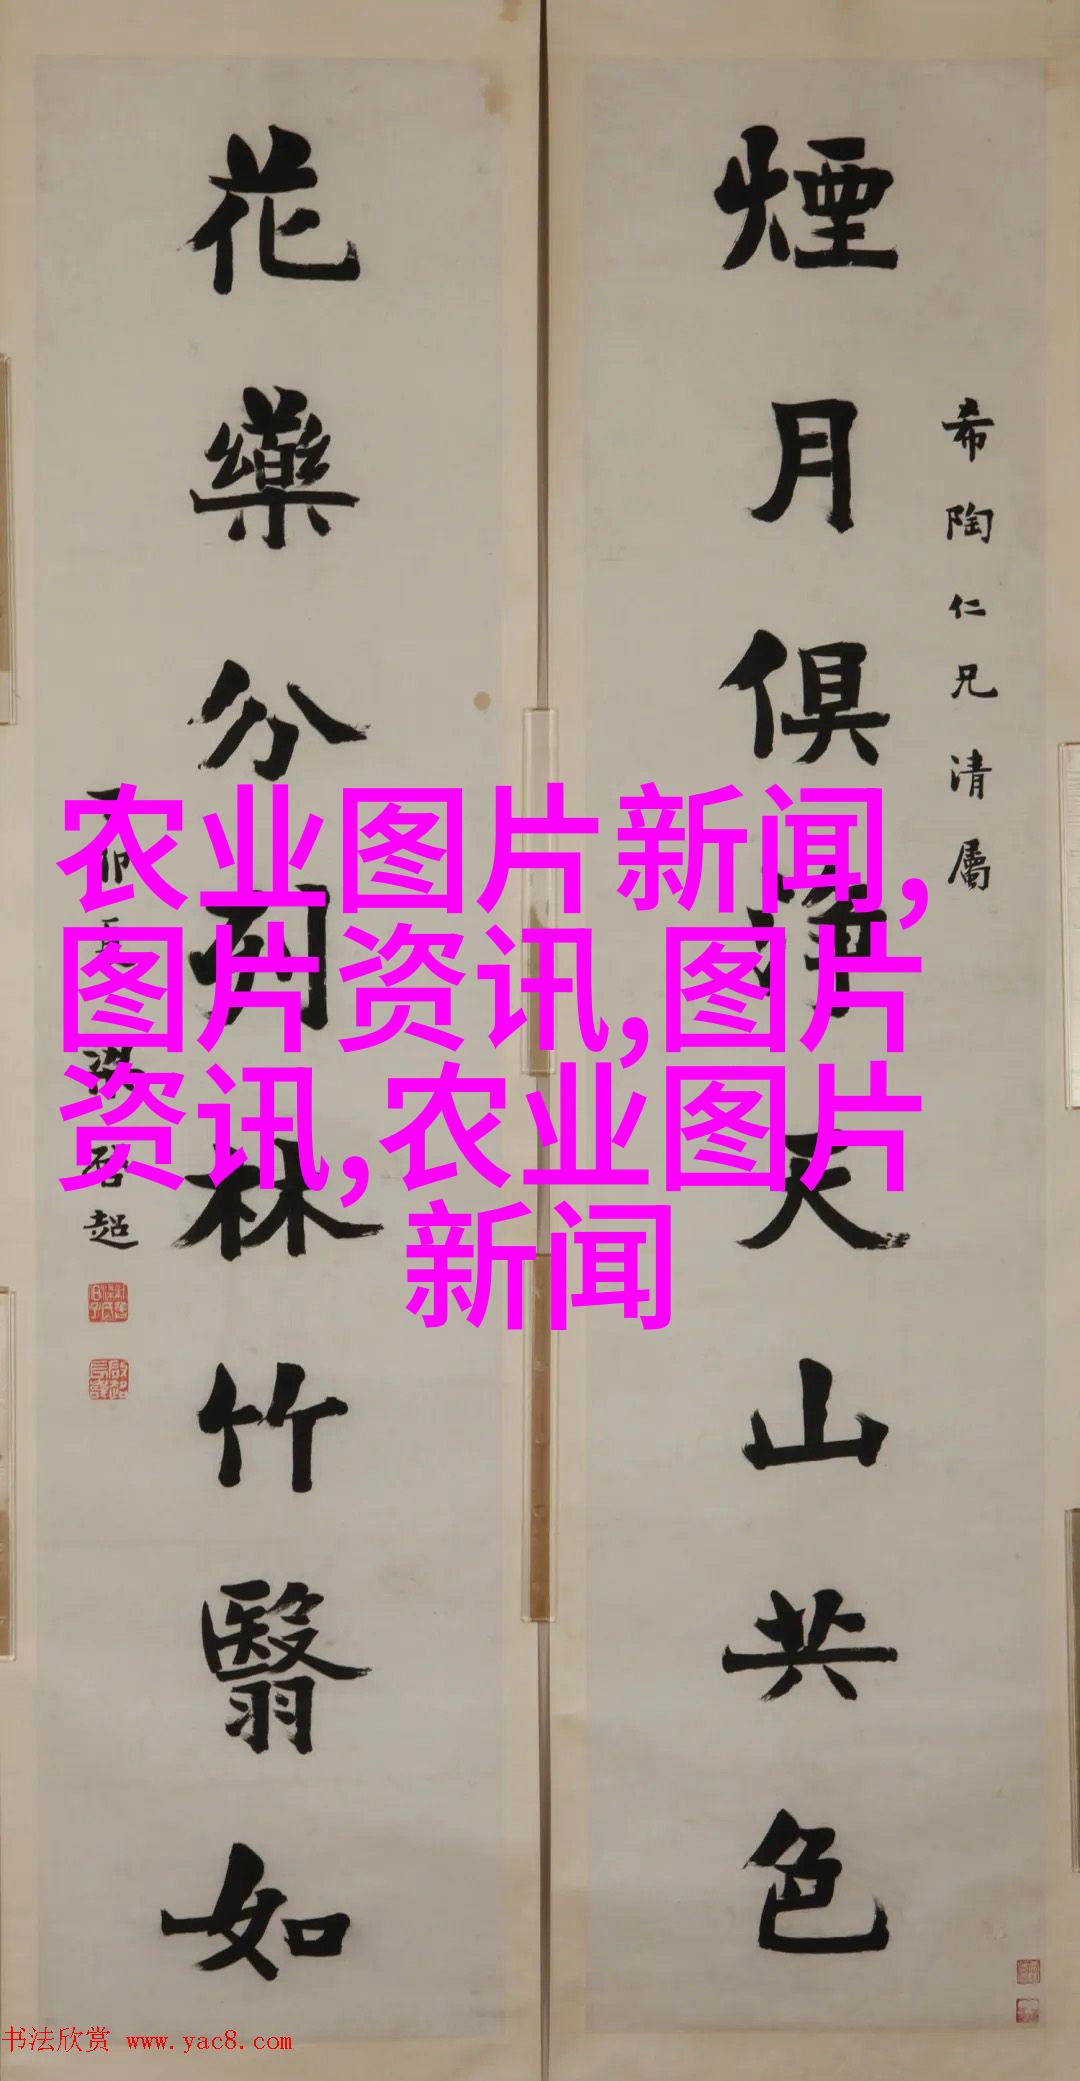 希陶仁兄清屬
煙月俱淨天山共色
花藥分列林竹翳如
丁卯梁啟超
农业图片新闻,
图片资讯,图片
资讯,农业图片
新闻
书法欣赏 www.yac8.com